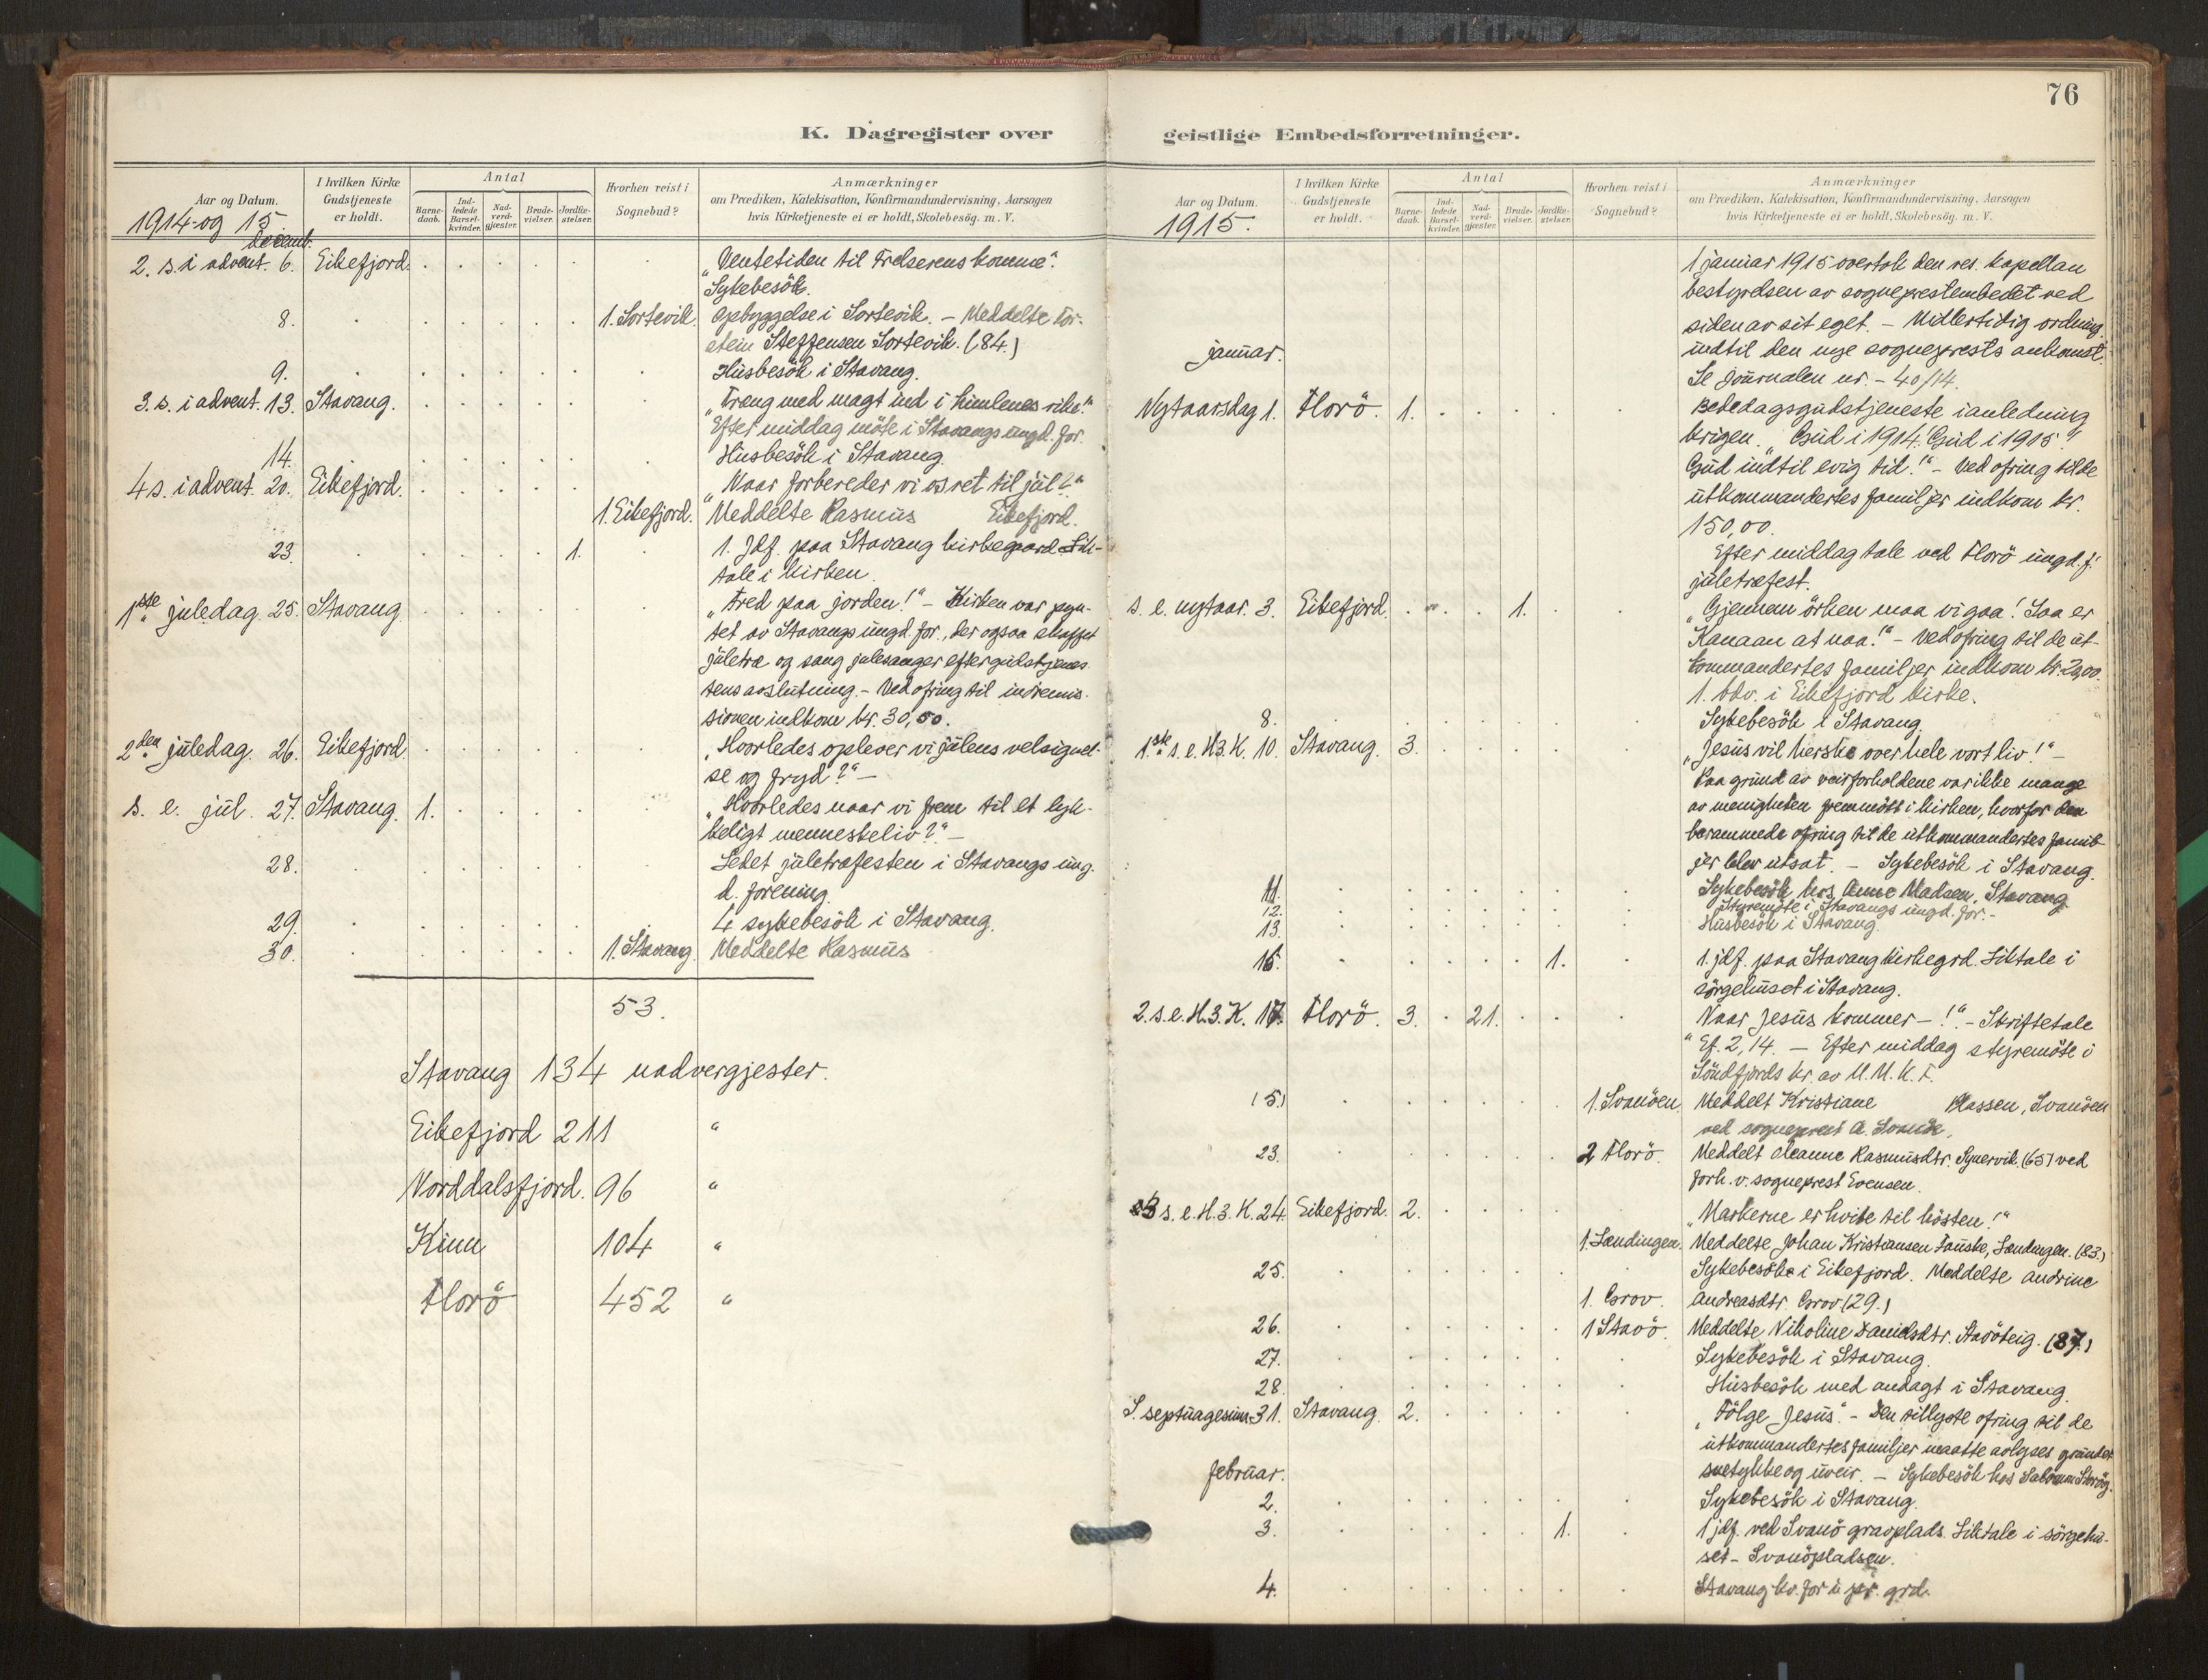 76
K. Dagregister over
geistlige Embedsforretninger.
Aar og Datum.
I hvilken Kirke Gudstjeneste er holdt.
Antal
Barnedaab.
Indledede Barselkvinder.
Nadverdgjæster.
Brudevielser.
Jordfæstelser.
Hvorhen reist i Sognebud?
Anmærkninger
om Prædiken, Katekisation, Konfirmandundervisning, Aarsagen
hvis Kirketjeneste ei er holdt, Skolebesög. m. V.
1914 og 15.
decemb.
2. s. i advent. 6. Eikefjord. „Ventetiden til Frelserens komme".
Sykebesök.
8. 1. Sortevik. Opbyggelse i Sortevik. – Meddelte Tor-
stein Steffensen Sortevik. (84.)
9. Husbesök i Stavang.
3. s. i advent. 13. Stavang. „Træng med magt ind i himlenes rike!"
Efter middag möte i Stavangs ungd. for.
14. Husbesök i Stavang.
4 s. i advent. 20. Eikefjord. „Naar forbereder vi os ret til jul?"
1. Eikefjord. Meddelte Rasmus Eikefjord.
23. 1. 1. Jdf. paa Stavang kirkegaard Lik-
tale i kirken.
1ste juledag. 25. Stavang. „Fred paa jorden!" – Kirken var pyn-
tet av Stavangs ungd. for., der ogsaa skaffet
juletræ og sang julesanger efter gudstjenes-
tens avslutning. – Ved ofring til indremis-
sionen indkom kr. 30,50.
2den juledag. 26. Eikefjord. „Hvorledes oplever vi julens velsignel-
se og fryd?" –
s. e. jul. 27. Stavang. 1. „Hvorledes naar vi frem til et lyk-
keligt menneskeliv?" –
28. Ledet juletræfesten i Stavangs ung-
d. forening.
29. 4 sykebesök i Stavang.
30. 1. Stavang. Meddelte Rasmus
53.
Stavang 134 nadvergjester.
Eikefjord 211 "
Norddalsfjord. 96 "
Kinn 104 "
Florö 452 "
Aar og Datum.
I hvilken Kirke Gudstjeneste er holdt.
Antal
Barnedaab.
Indledede Barselkvinder.
Nadverdgjæster.
Brudevielser.
Jordfæstelser.
Hvorhen reist i Sognebud?
Anmærkninger
om Prædiken, Katekisation, Konfirmandundervisning, Aarsagen
hvis Kirketjeneste ei er holdt, Skolebesög. m. V.
1915.
1 januar 1915 overtok den res. kapellan
bestyrelsen av sogneprestembedet ved
siden av sit eget. – Midlertidig ordning
januar. indtil den nye sogneprests ankomst.
Se journalen nr. – 40/14.
Nytaarsdag 1. Florö. 1. Bededagsgudstjeneste i anledning
krigen. „Gud i 1914. Gud i 1915.
Gud indtil evig tid!" – Ved ofring til de
utkommandertes familjer indkom kr.
150,00.
Efter middag tale ved Florö ungd. f.
juletræfest.
s. e. nytaar. 3. Eikefjord. 1. „Gjennem örken maa vi gaa! Saa er
Kanaan at naa!" – Ved ofring til de ut-
kommandertes familjer indkom kr. 21,00.
1. bdv. i Eikefjord kirke.
8. Sykebesök i Stavang.
1ste s. e. H. 3. K. 10. Stavang. 3. „Jesus vil herske over hele vort liv!" –
Paa grund av veirforholdene var ikke mange
av menigheten fremmött i kirken, hvorfor den
berammede ofring til de utkommandertes famil-
jer blev utsat. – Sykebesök i Stavang.
11. Sykebesök hos Anne Madsen, Stavang
12. Styremöte i Stavangs ungd. for. –
13. Husbesök i Stavang.
16. 1. 1. jdf. paa Stavang kirkegrd. Liktale i
sörgehuset i Stavang.
2. s. e. H. 3. K. 17. Florö. 3. 21. „Naar Jesus kommer – !" – Skriftetale
Ef. 2,14. – Efter middag styremöte i
Söndfjords kr. av U. M. K. F.
(5.) 1. Svanöen. Meddelt Kristiane Klassen, Svanöen
ved sogneprest A.
23. 2 Florö. Meddelt Oleanne Rasmusdtr. (65) ved
forh. v. sogneprest Evensen.
3 s. e. H. 3. K. 24. Eikefjord. 2. „Markerne er hvite til hösten!"
1. Lændingen. Meddelte Johan Kristiansen Fauske, Lændingen. (83.)
25. Sykebesök i Eikefjord. Meddelte Andrine
1. Grov. Andreasdtr. Grov (29.)
26. 1 Stavö. Meddelte Nikoline Danielsdtr. Stavöteig. (87.)
27. Sykebesök i Stavang.
28. Husbesök med andagt i Stavang.
S. septuagesima 31. Stavang. 2. „Fölge Jesus". – Den tillyste ofring til de
utkommandertes familjer maatte avlyses grundet
snetykke og uveir. – Sykebesök hos
februar.
2. Sykebesök i Stavang.
3. 1. 1 jdf. ved Svanö gravplads. Liktale i sörgehu-
set – Svanöpladsen.
4. Stavang kv. for.